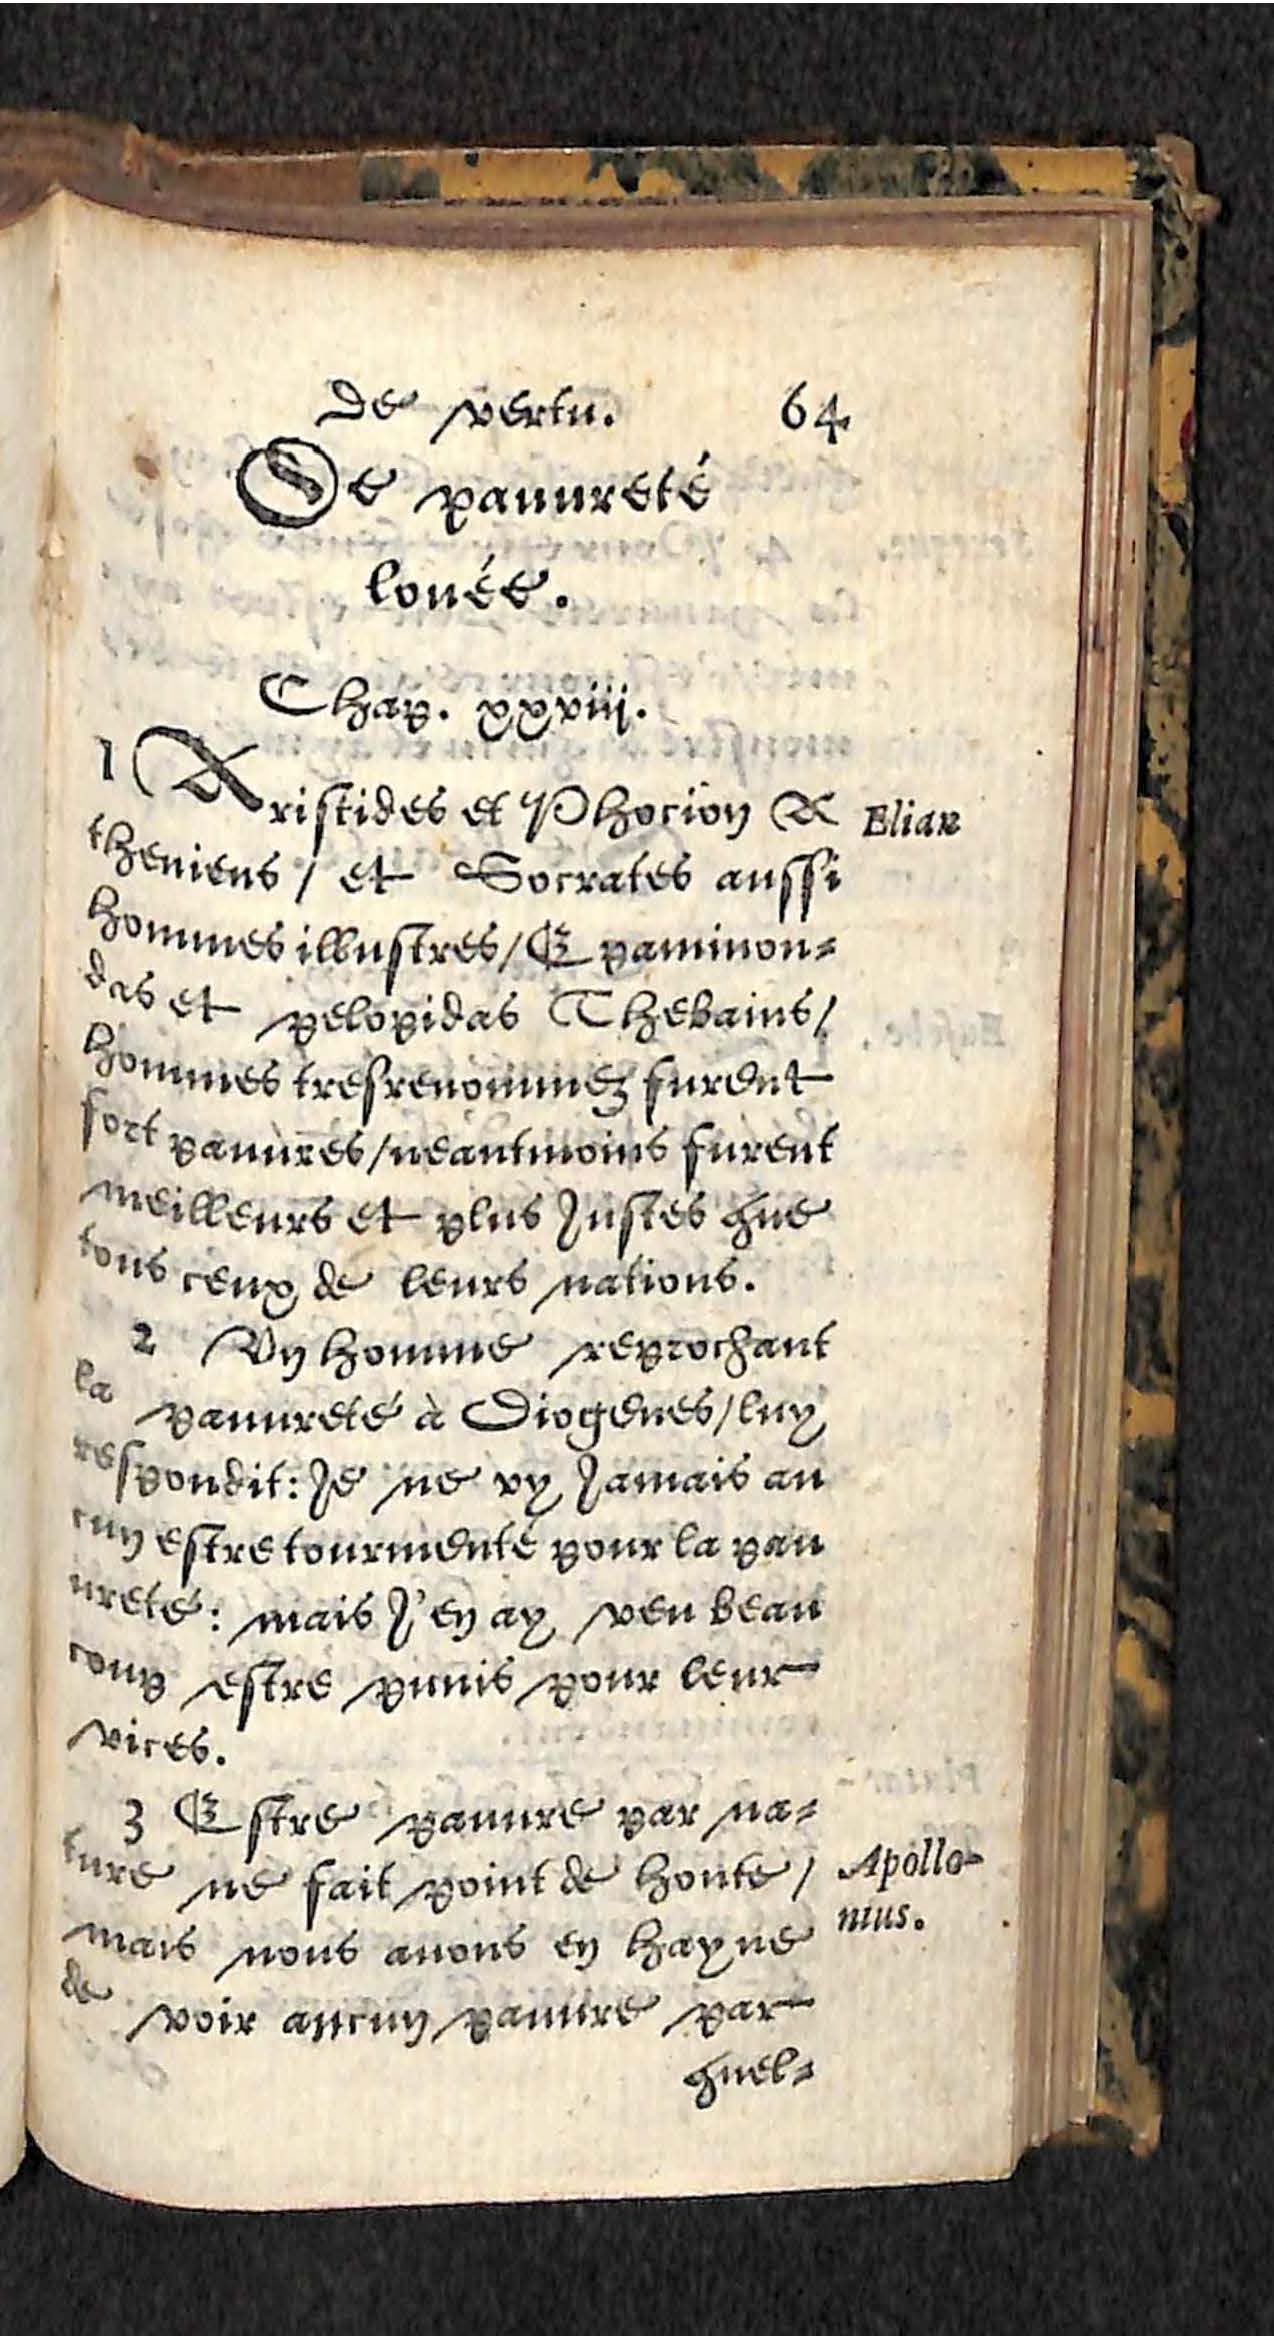 de vertu. 64
De pauureté
louée.
Chap. xxviii.
1 Aristides et Phocion A Elian
theniens / et Socrates aussi
hommes illustres / Epaminon-
das et pelopidas Thebains /
hommes tresrenommez furent
fort pauures / neantmoins furent
meilleurs et plus Justes que
tous ceux de leurs nations.
2 Vn homme reprochant
la pauureté à Diogenes / luy
respondit: Je ne vy Jamais au
cun estre tourmenté pour la pau
ureté: mais J'en ay veu beau
coup estre punis pour leur
vices.
3 Estre pauure par na-
ture ne fait point de honte / Apollo-
mais nous auons en hayne nius.
de voir aucun pauure par
quel-